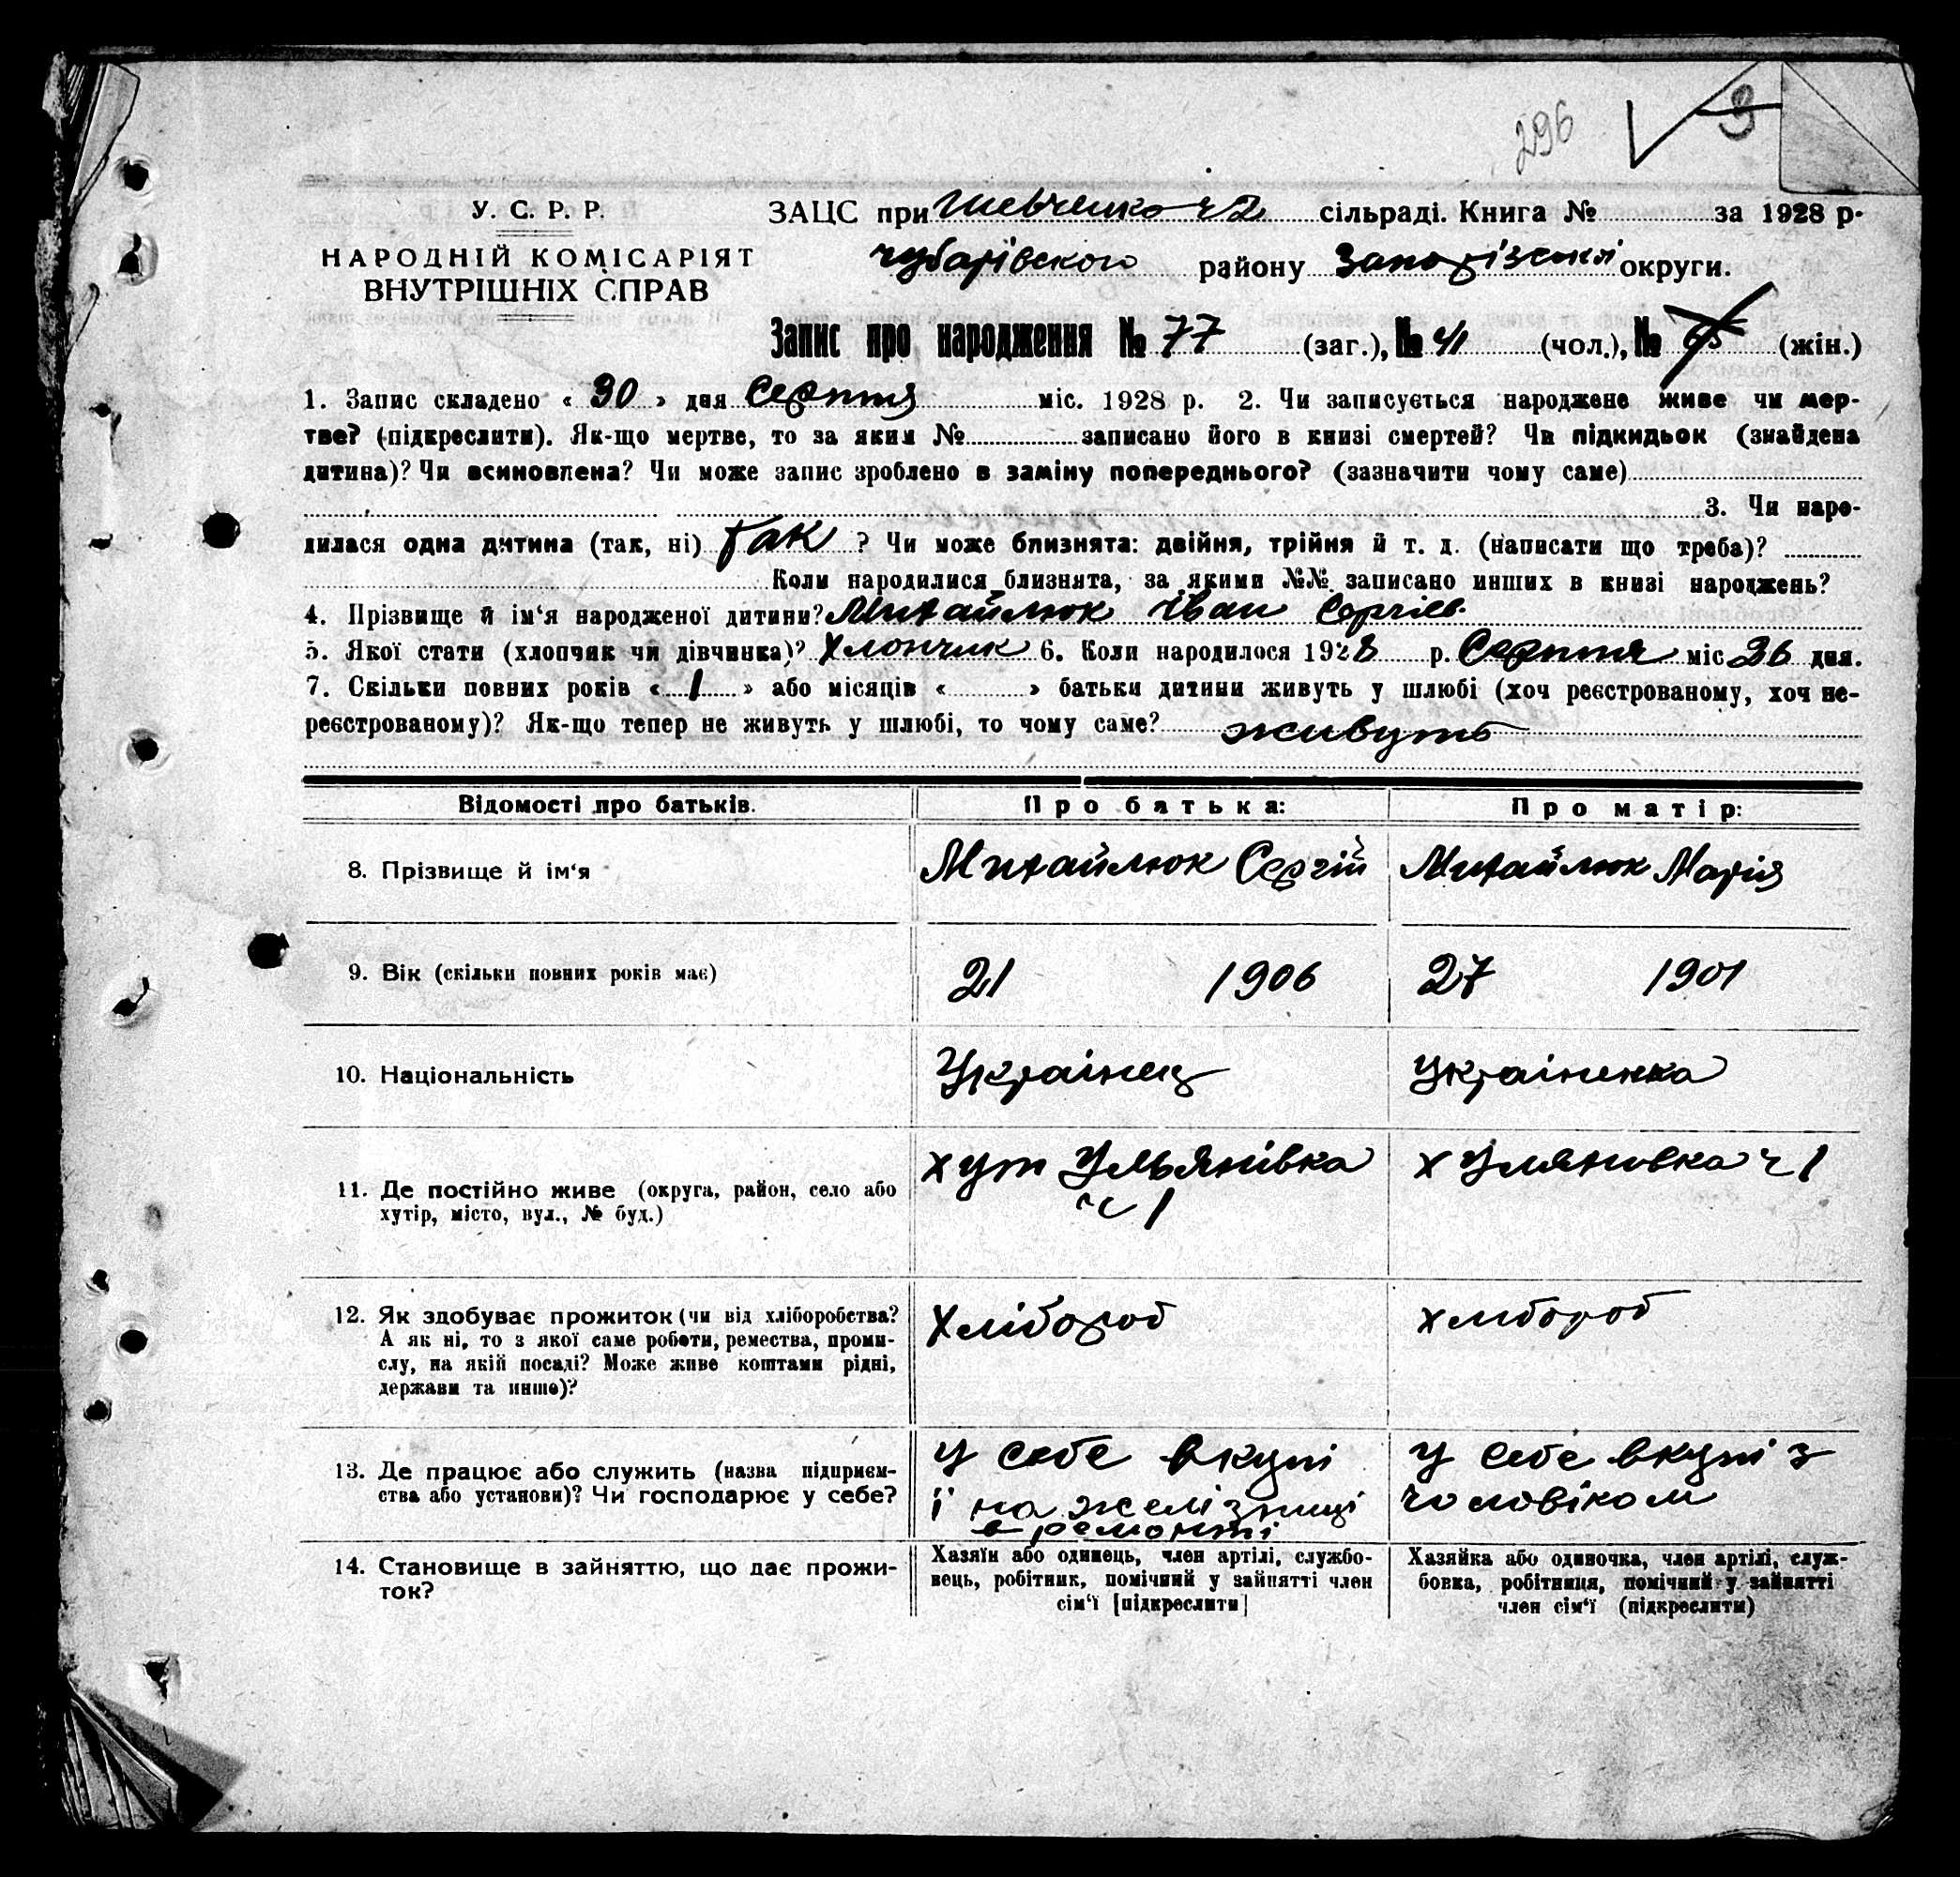 296
9
У. С. Р. Р.
НАРОДНІЙ КОМІСАРІЯТ
ВНУТРІШНІХ СПРАВ
ЗАЦС при Шевченко ч 2 сільраді. Книга № за 1928 р.
Чубарівского району Запорізської округи.
Запис про народження № 77 (заг.), № 41 (чол.), № (жін.)
1. Запис складено « 30 » дня Серпня міс. 1928 р. 2. Чи записується народжене живе чи мер-
тве? (підкреслити). Як-що мертве, то за яким № записано його в книзі смертей? Чи підкидьок (знайдена
дитина)? Чи всиновлена? Чи може запис зроблено в заміну попереднього? (зазначити чому саме)
3. Чи наро-
дилася одна дитина (так, ні) Так ? Чи може близнята: двійня, трійня й т. д. (написати що треба)?
Коли народилися близнята, за якими №№ записано инших в книзі народжень?
4. Прізвище й ім'я народженої дитини? Михайлюк Іван Сергіев.
5. Якої стати (хлопчик чи дівчинка)? Хлопчик 6. Коли народилося 1928 р. Серпня міс 26 дня.
7. Скільки повних років « 1 » або місяців « » батьки дитини живуть у шлюбі (хоч реєстрованому, хоч не-
реєстрованому)? Як-що тепер не живуть у шлюбі, то чому саме? живуть
Відомості про батьків. Про батька: Про матір:
8. Прізвище й ім'я Михайлюк Сергій Михайлюк Марія
9. Вік (скільки повних років має) 21 1906 27 1901
10. Національність Українец Українка
11. Де постійно живе (округа, район, село або
хутір, місто, вул., № буд.)
хут Ульянівка
ч 1
х Уляновка ч 1
12. Як здобуває прожиток (чи від хліборобства?
А як ні, то з якої саме роботи, ремества, проми-
слу, на якій посаді? Може живе коштами рідні,
держави та инше)?
Хлібороб
хлибороб
13. Де працює або служить (назва підприєм-
ства або установи)? Чи господарює у себе?
У себе вкупі
і на желізниці
в ремонті
У себе вкупі з
чоловіком
14. Становище в зайняттю, що дає прожи-
ток?
Хазяїн або одинець, член артілі, службо-
вець, робітник, помічний у зайнятті член
сім'ї [підкреслити]
Хазяйка або одиночка, член артілі, служ-
бовка, робітниця, помічний у зайнятті
член сім'ї (підкреслити)